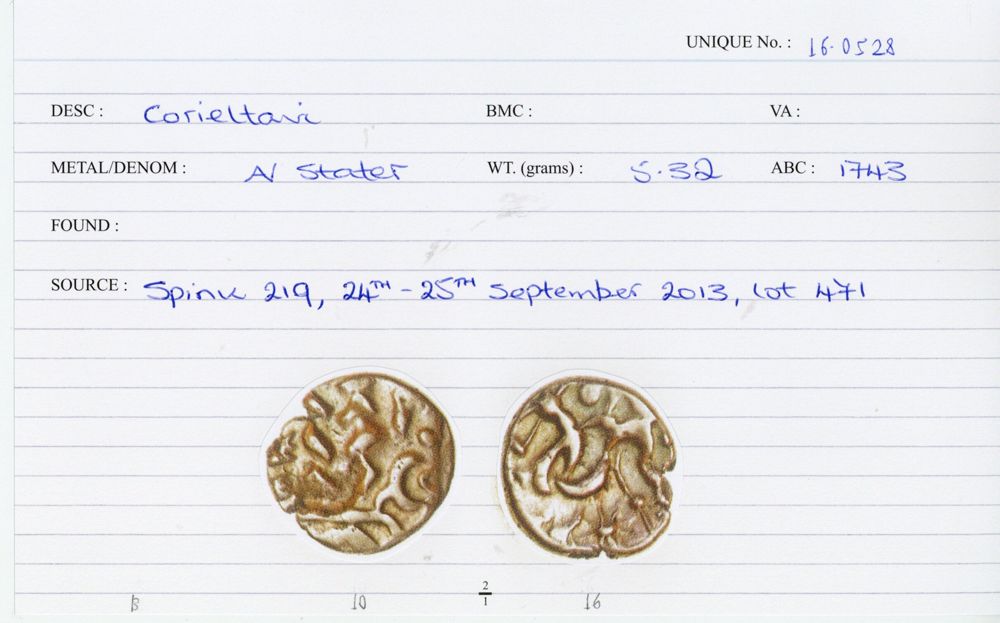 UNIQUE No. : 16.0528
DESC : Corieltavi BMC : VA :
METAL/DENOM : AV Stater WT. (grams) : 5.32 ABC : 1743
FOUND :
SOURCE : Spink 219, 24TH - 25TH September 2013, lot 471
B 10 2/1 16